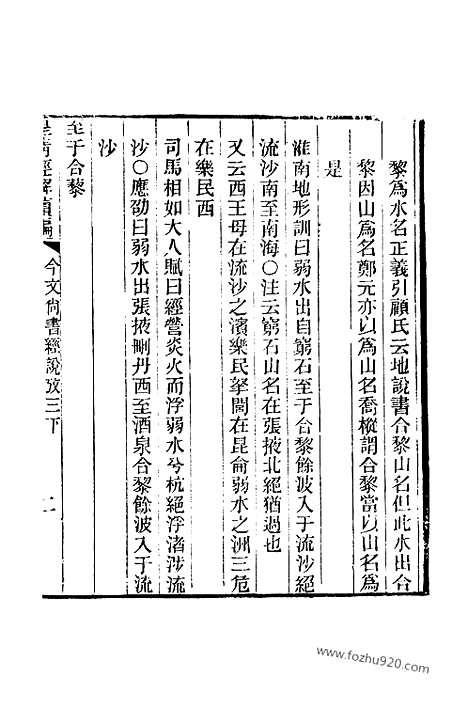 黎爲水名正義引顧氏云地說書合黎山名但此水出合
黎因山爲名鄭元亦以爲山名喬樅謂合黎當以山名爲
是
淮南地形訓曰弱水出自窮石至于合黎餘波入于流沙絕
流沙南至南海○注云窮石山名在張掖北絕猶過也
又云西王母在流沙之濱樂民拏閭在昆侖弱水之洲三危
在樂民西
司馬相如大人賦曰經營炎火而浮弱水兮杭絕浮渚涉流
沙○應劭曰弱水出張掖刪丹西至酒泉合黎餘波入于流
沙
至于合黎
皇清經解續編
今文尙書經說攷三下
二
www.fozhu920.com